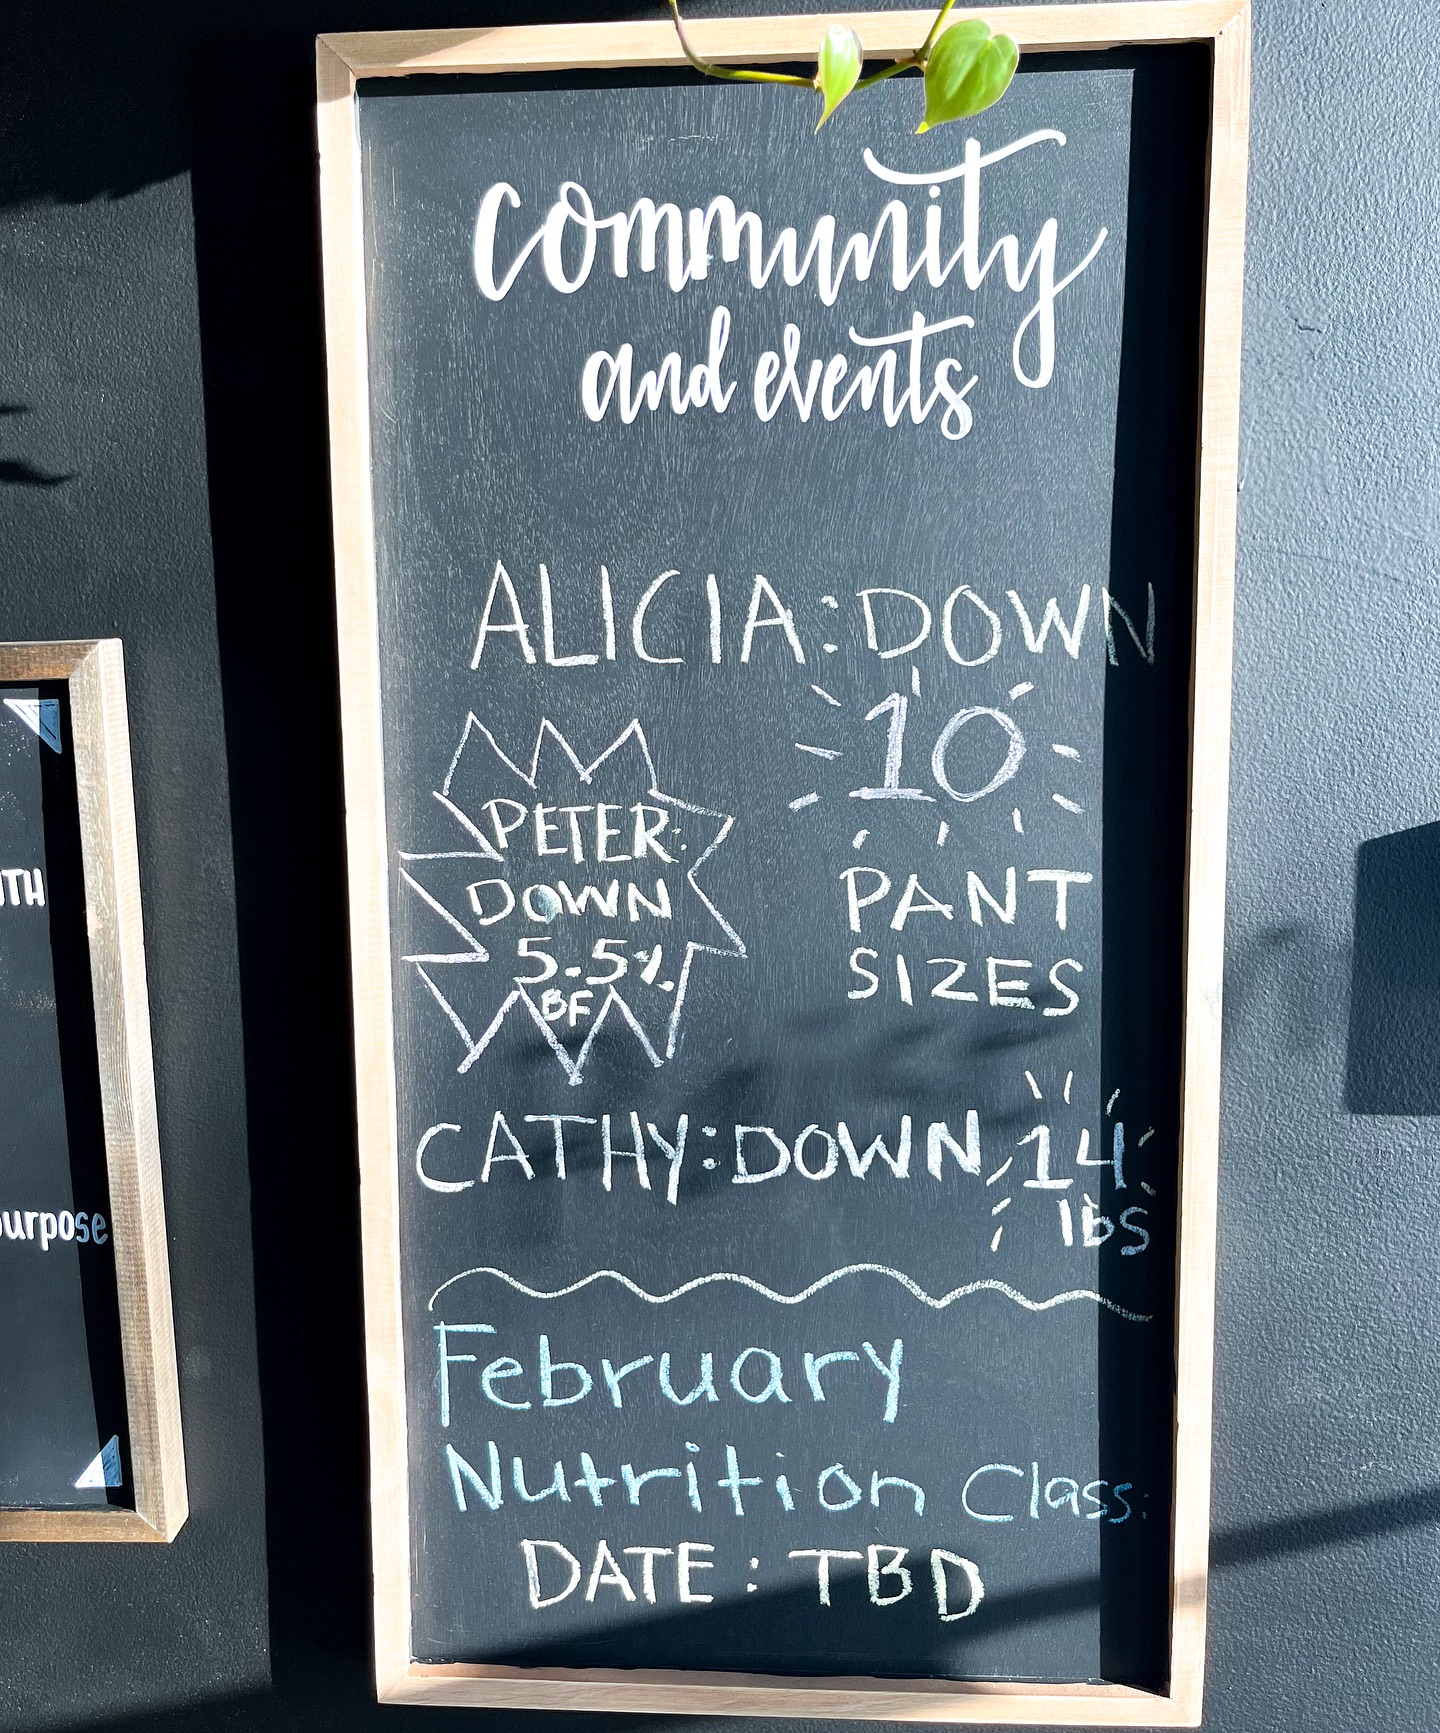 community
and events
ALICIA: DOWN
10
PANT
SIZES
PETER:
DOWN
5.5%
BF
CATHY: DOWN 14
lbs
February
Nutrition Class:
DATE: TBD
purpose